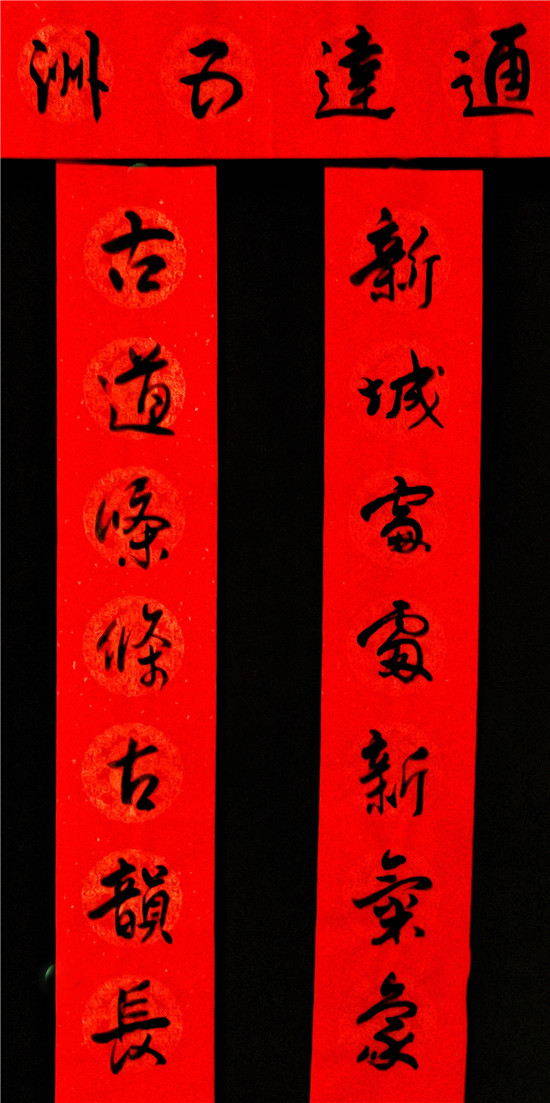 通達五洲
新城處處新氣象
古道條條古韻長